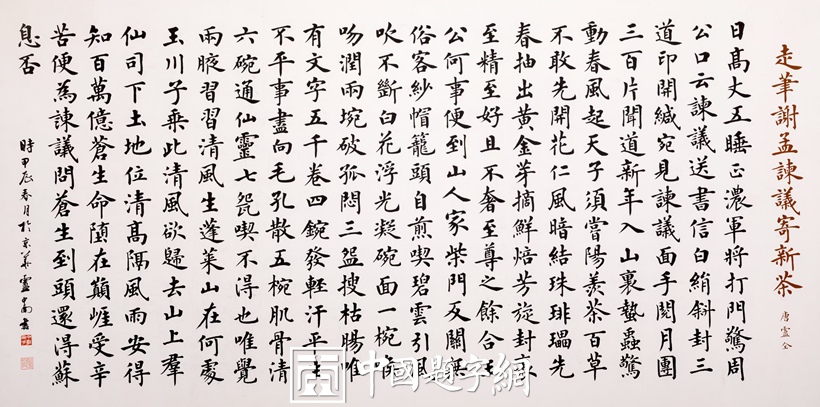 走筆謝孟諫議寄新茶
唐盧仝
日高丈五睡正濃軍將打門驚周
公口云諫議送書信白絹斜封三
道印開緘宛見諫議面手閱月團
三百片聞道新年入山裏蟄蟲驚
動春風起天子須嘗陽羨茶百草
不敢先開花仁風暗結珠琲瓃先
春抽出黃金芽摘鮮焙芳旋封裹
至精至好且不奢至尊之餘合王
公何事便到山人家柴門反關無
俗客紗帽籠頭自煎喫碧雲引風
吹不斷白花浮光凝碗面一椀喉
吻潤兩埦破孤悶三盌搜枯腸唯
有文字五千卷四鋺發輕汗平生
不平事盡向毛孔散五椀肌骨清
六碗通仙靈七㼝喫不得也唯覺
兩腋習習清風生蓬萊山在何處
玉川子乘此清風欲歸去山上羣
仙司下土地位清高隔風雨安得
知百萬億蒼生命墮在巔崖受辛
苦便為諫議問蒼生到頭還得蘇
息否
時甲辰春月於京華盧中南書
中國題字網